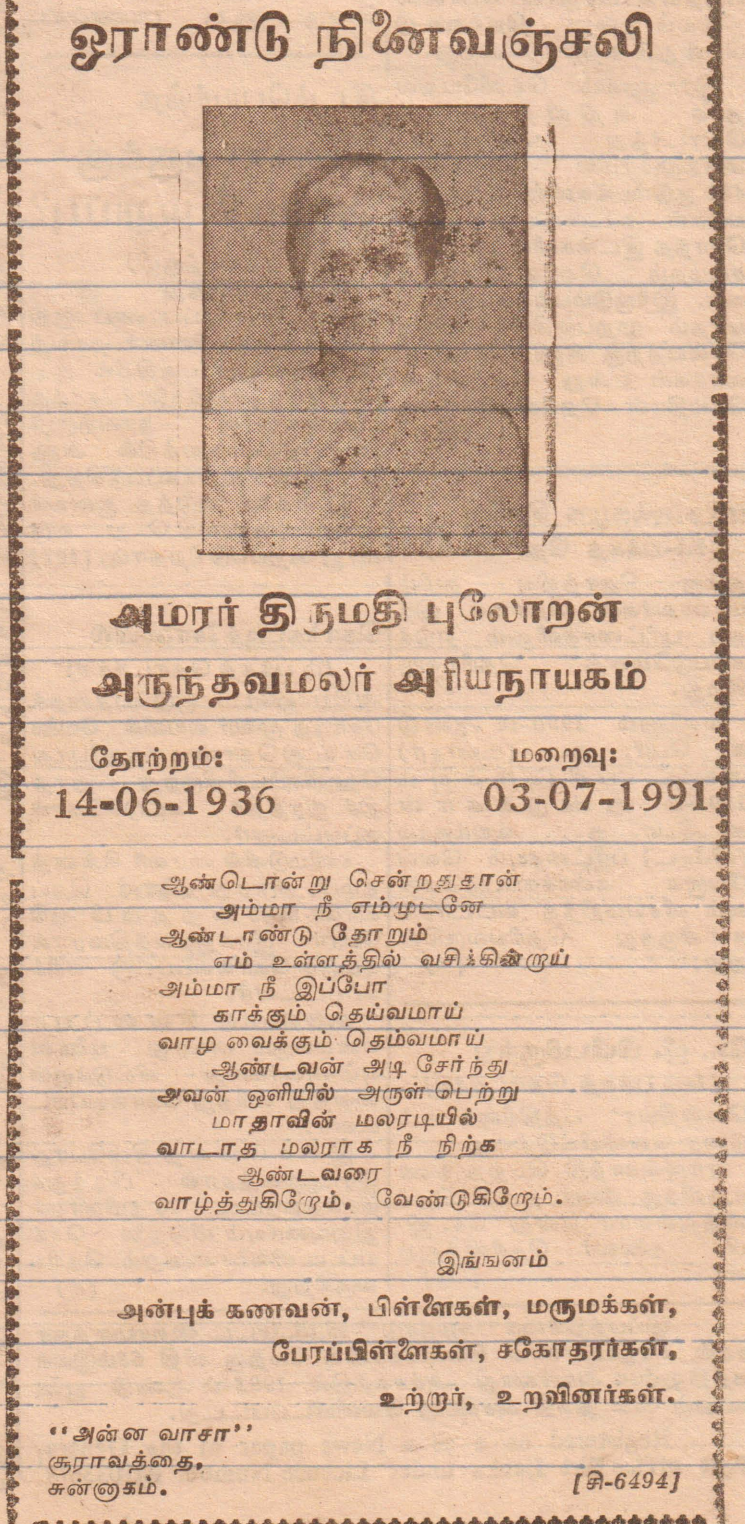 ஓராண்டு நினைவஞ்சலி
அமரர் திருமதி புலோறன்
அருந்தவமலர் அரியநாயகம்
தோற்றம்: மறைவு:
14-06-1936 03-07-1991
ஆண்டொன்று சென்றதுதான்
அம்மா நீ எம்முடனே
ஆண்டாண்டு தோறும்
எம் உள்ளத்தில் வசிக்கின்றாய்
அம்மா நீ இப்போ
காக்கும் தெய்வமாய்
வாழ வைக்கும் தெம்வமாய்
ஆண்டவன் அடி சேர்ந்து
அவன் ஒளியில் அருள் பெற்று
மாதாவின் மலரடியில்
வாடாத மலராக நீ நிற்க
ஆண்டவரை
வாழ்த்துகிறோம், வேண்டுகிறோம்.
இங்ஙனம்
அன்புக் கணவன், பிள்ளைகள், மருமக்கள்,
பேரப்பிள்ளைகள், சகோதரர்கள்,
உற்றார், உறவினர்கள்.
‘‘அன்ன வாசா’’
சூராவத்தை,
சுன்னாகம். [சி-6494]